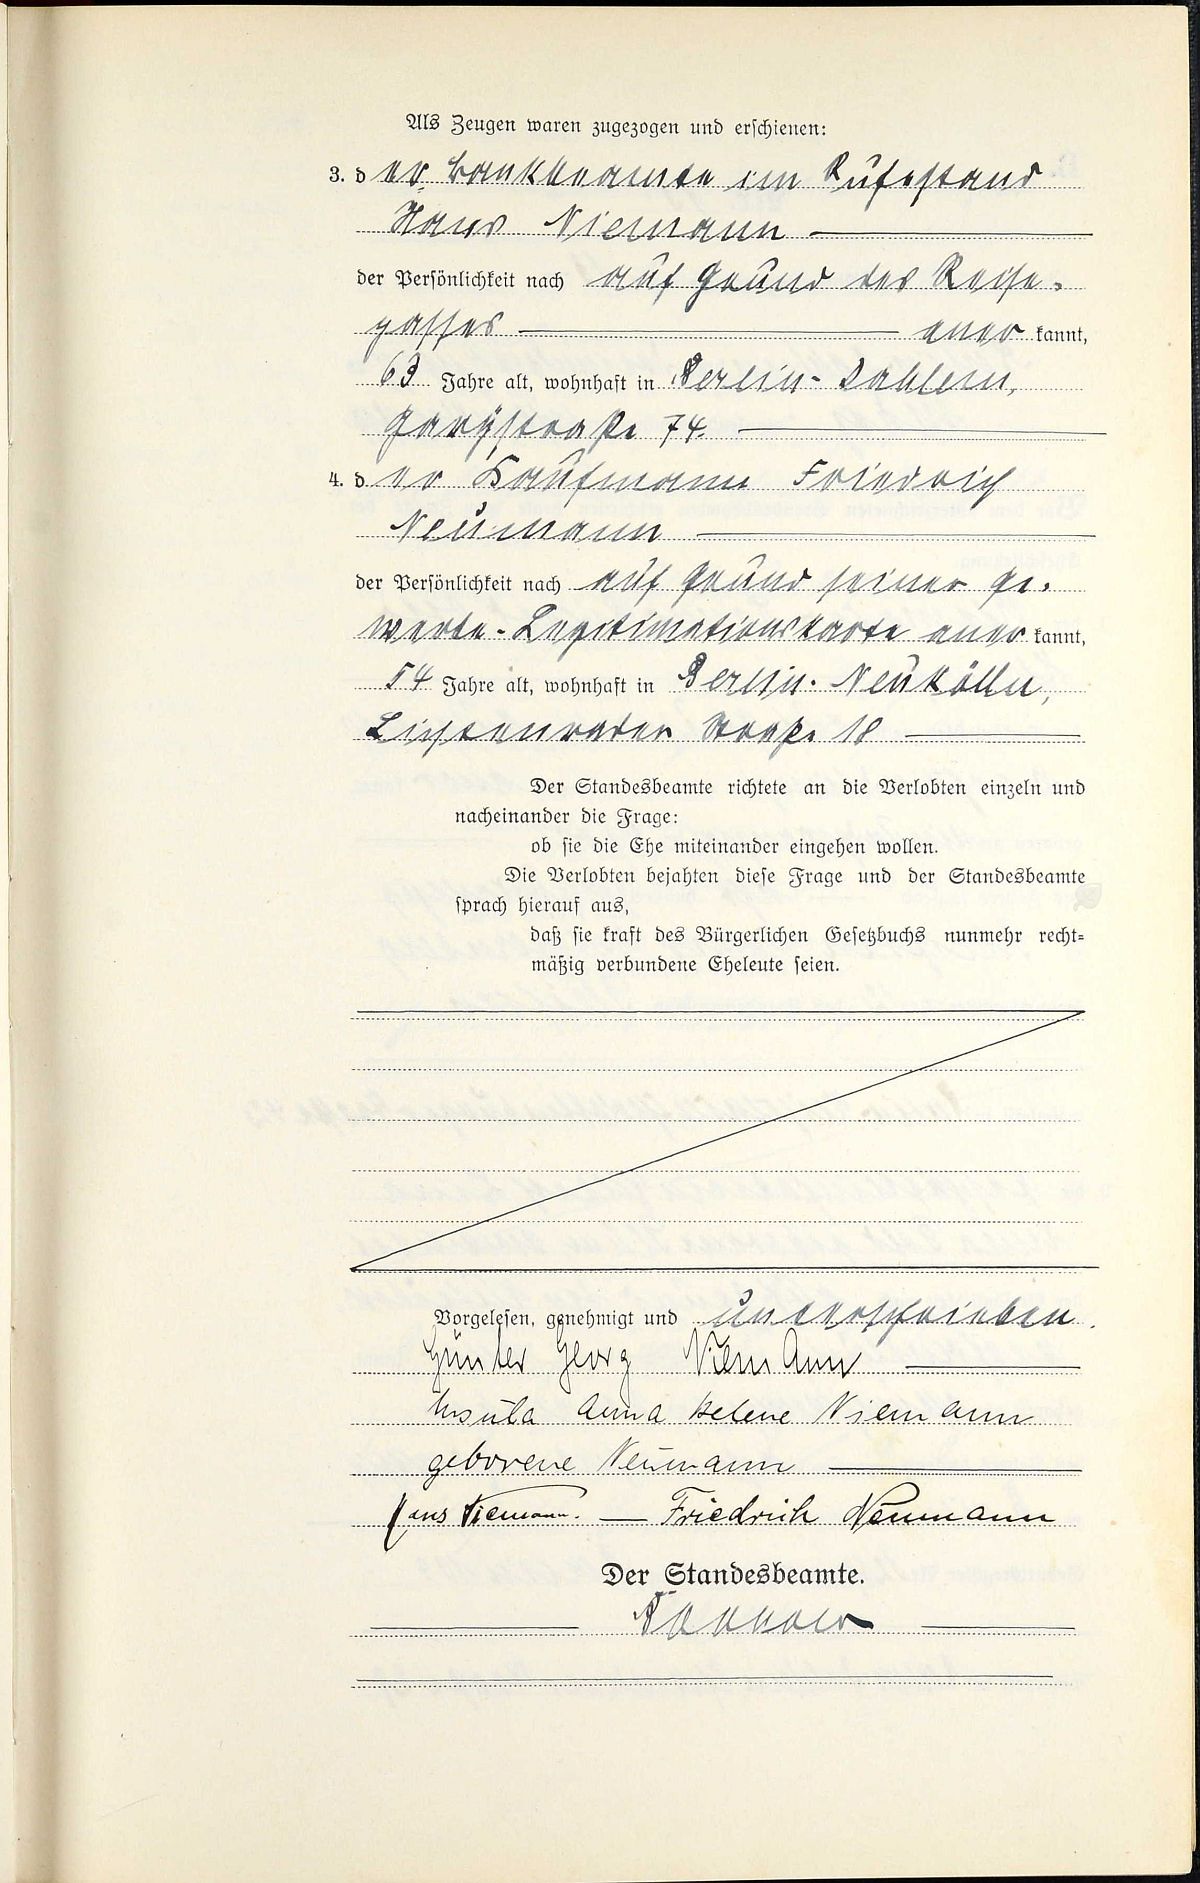 Als Zeugen waren zugezogen und erschienen:
3. der Bankbeamte im Ruhestand
Hans Niemann
der Persönlichkeit nach auf Grund des Reise-
passes aner kannt,
63 Jahre alt, wohnhaft in Berlin-Dahlem,
Garystraße 74.
4. der Kaufmann Friedrich
Neumann
der Persönlichkeit nach auf Grund seiner Ge-
werbe-Legitimationskarte aner kannt,
54 Jahre alt, wohnhaft in Berlin-Neukölln,
Lichtenrader Straße 18
Der Standesbeamte richtete an die Verlobten einzeln und
nacheinander die Frage:
ob sie die Ehe miteinander eingehen wollen.
Die Verlobten bejahten diese Frage und der Standesbeamte
sprach hierauf aus,
daß sie kraft des Bürgerlichen Gesetzbuchs nunmehr recht-
mäßig verbundene Eheleute seien.
Vorgelesen, genehmigt und unterschrieben.
Günter Georg Niemann
Ursula Anna Helene Niemann
geborene Neumann
Hans Niemann. — Friedrich Neumann
Der Standesbeamte.